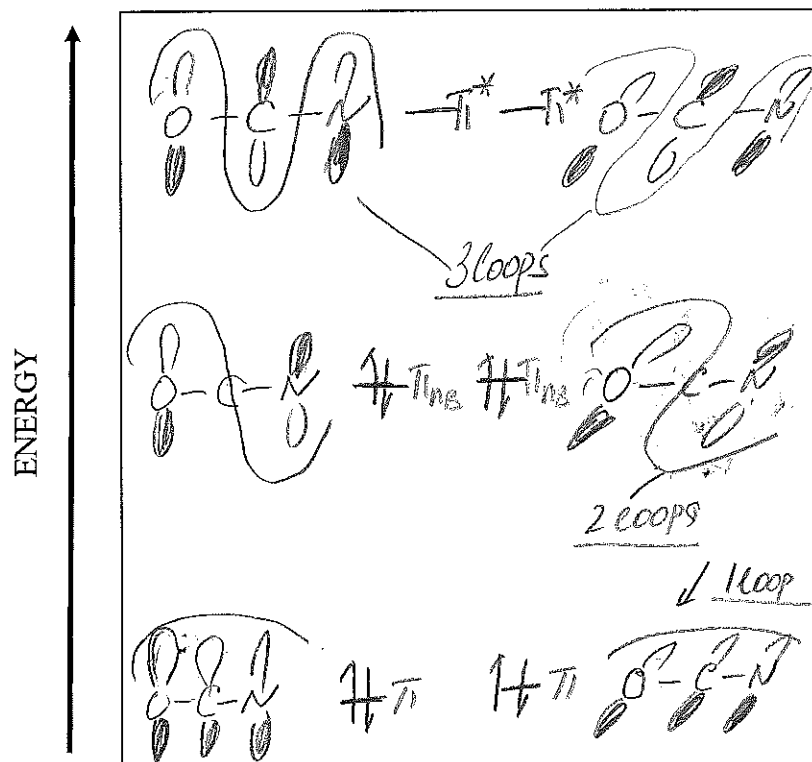 ENERGY
O - C - N — π* — π* O - C - N
3 loops
O - C - N ⇅ πnB ⇅ πnB O - C - N
2 loops
↙ 1 loop
O - C - N ⇅ π ⇅ π O - C - N